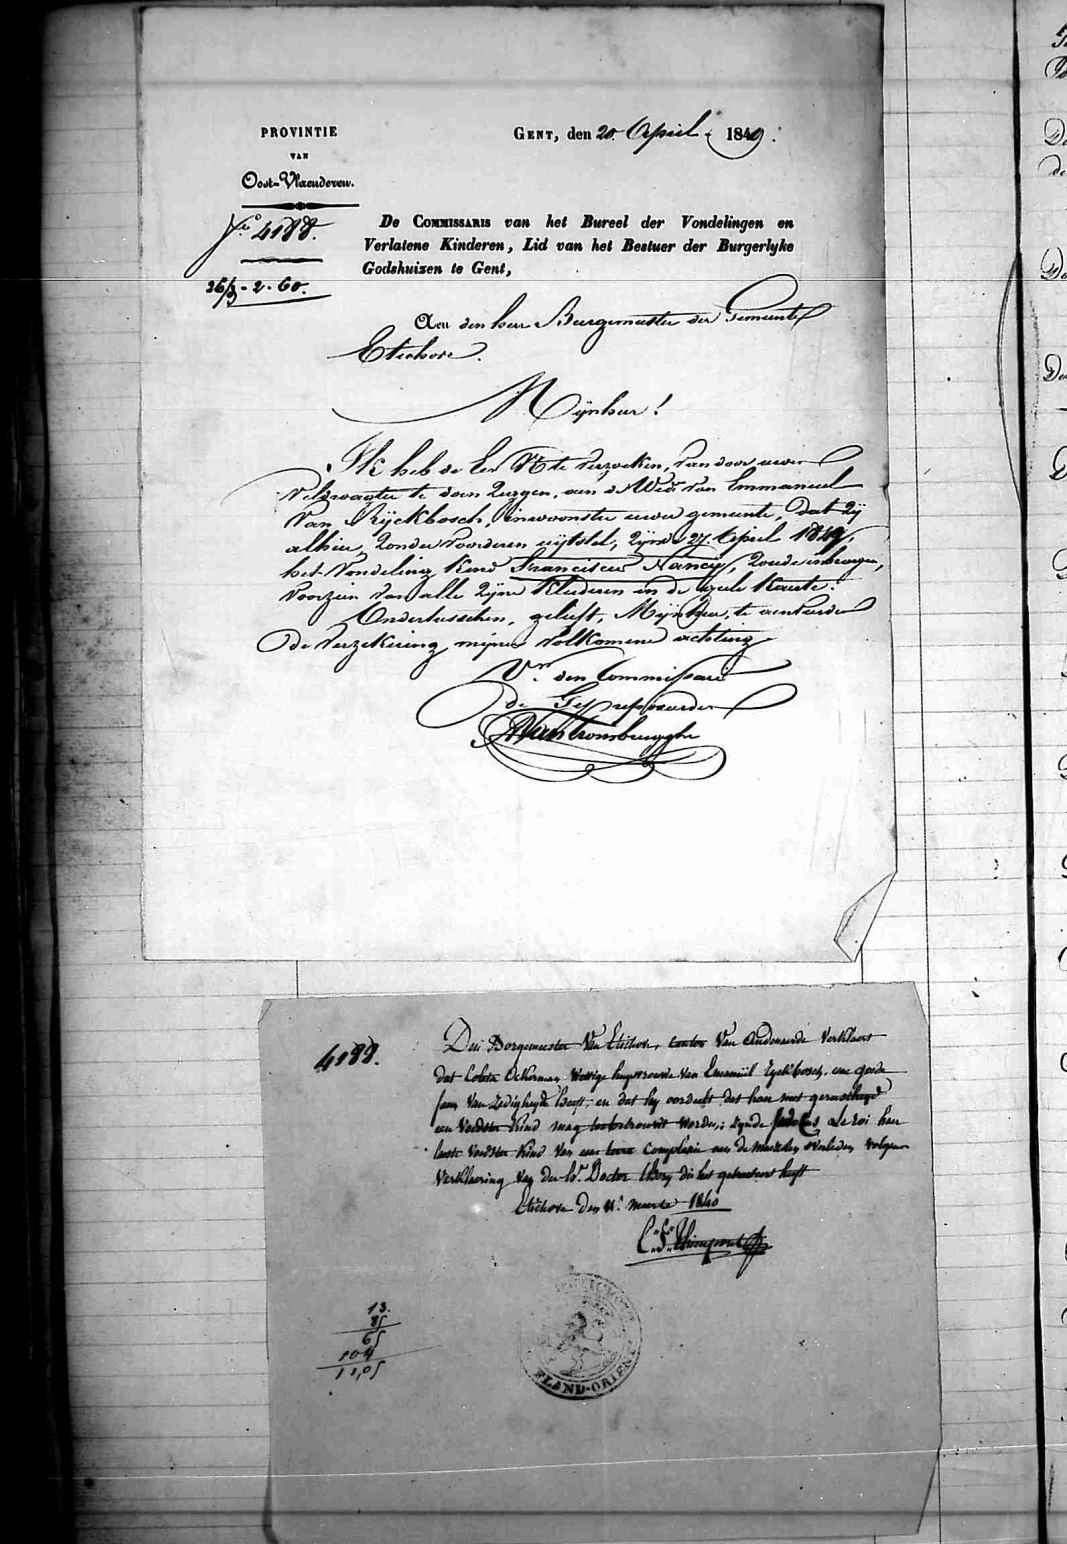 PROVINTIE
VAN
Oost-Vlaenderen.
GENT, den 20. April 1849.
N.º 4188.
26/9 - 2 - 60.
De COMMISSARIS van het Bureel der Vondelingen en
Verlatene Kinderen, Lid van het Bestuer der Burgerlyke
Godshuizen te Gent,
Aen den heer Burgemeester der Gemeente
Etichove.
Mijnheer!
Ik heb de Eer UE te verzoeken, van door uwen
Veldwagter te doen zeggen, aen de Wede. van Emmanuel
Van Rijckbosch, inwoonster uwer gemeente, dat zij
alhier, zonder voorderen uijtstel, zijnde 27. April 1849,
het vondeling kind Franciscus Nancy, zoude inbrengen,
voorzien van alle zijne kleederen en de geele kaerte.
Ondertusschen, gelieft, Mijnheer, te aenveerden
de verzekering mijner volkomene achting
Vr. den Commissaris
de
4188.
Den Borgemeester van Etichove, canton van Audenaerde verklaert
dat Coleta Ockerman Wettige huysvrouwe van Emanuil Eyckbosch, eene goede
faem van zedigheyd heeft; en dat hy oordeelt dat haer met gerustheyd
een Voedster kind mag toebetrouwt worden; zynde Le roi haer
leste Voedster kind van eene aen de maezelen overleden volgens
Verklaering van den hr. Doctor die het getracteert heeft
Etichove den 11.e meerte 1840
13.
85
65
104
11,05
FLAND-ORIENT